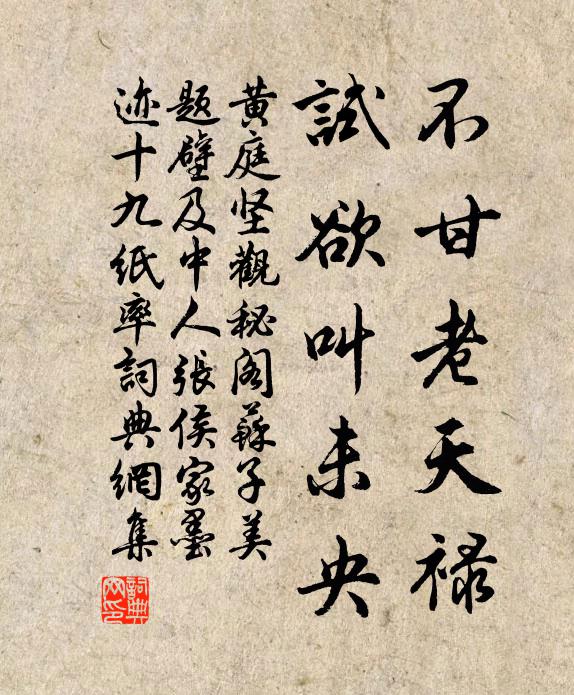 不甘老天禄
試欲叫未央
黄庭坚觀秘阁蘇子美
题壁及中人張侯家墨
迹十九紙率詞典網集
詞典
网印